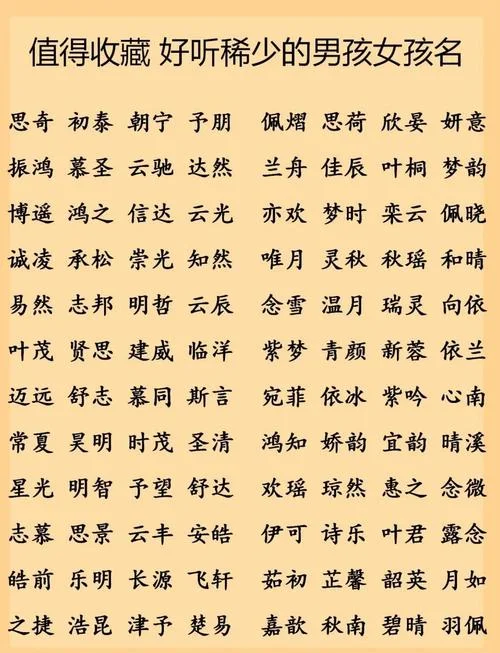 值得收藏 好听稀少的男孩女孩名
思奇 初泰 朝宁 予朋 佩熠 思荷 欣晏 妍意
振鸿 慕圣 云驰 达然 兰舟 佳辰 叶桐 梦韵
博遥 鸿之 信达 云光 亦欢 梦时 栾云 佩晓
诚凌 承松 崇光 知然 唯月 灵秋 秋瑶 和晴
易然 志邦 明哲 云辰 念雪 温月 瑞灵 向依
叶茂 贤思 建威 临洋 紫梦 青颜 新蓉 依兰
迈远 舒志 慕同 斯言 宛菲 依冰 紫吟 心南
常夏 昊明 时茂 圣清 鸿知 娇韵 宜韵 晴溪
星光 明智 予望 舒达 欢瑶 琼然 惠之 念微
志慕 思景 云丰 安皓 伊可 诗乐 叶君 露念
皓前 乐明 长源 飞轩 茹初 芷馨 韶英 月如
之捷 浩昆 津予 楚易 嘉歆 秋南 碧晴 羽佩